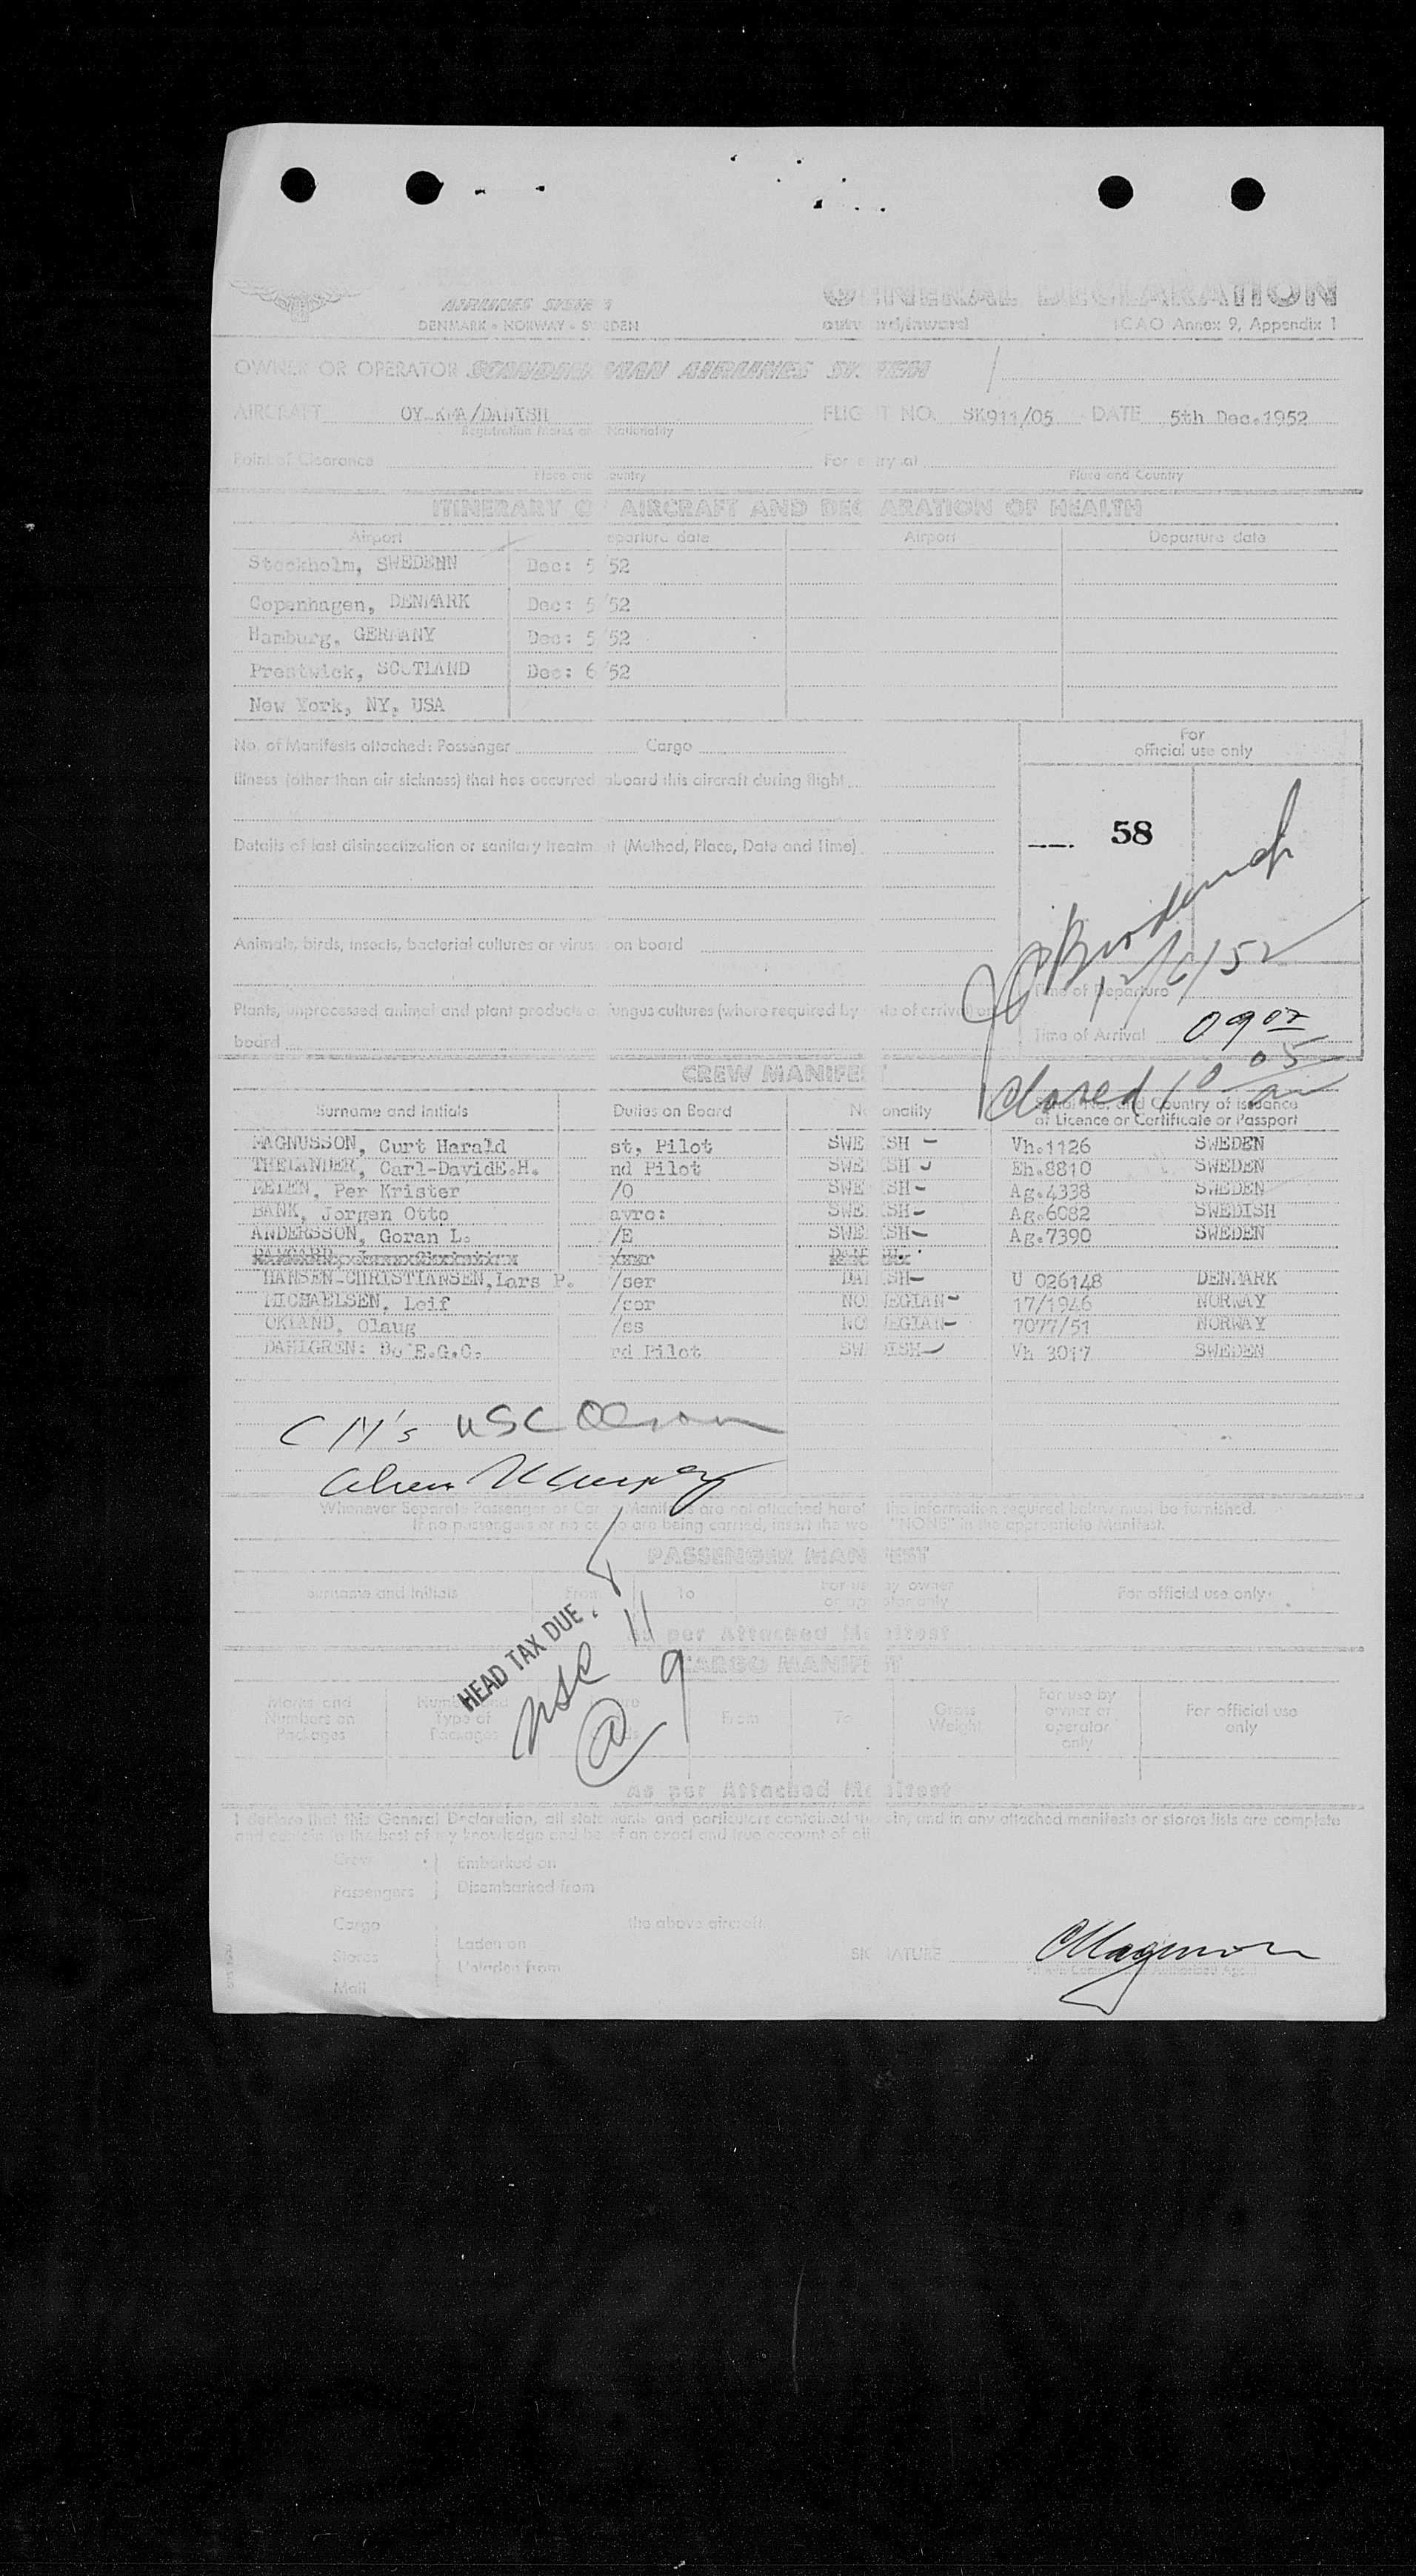 AIRLINES SYSTEM
DENMARK • NORWAY • SWEDEN
GENERAL DECLARATION
outward/inward ICAO Annex 9, Appendix 1
OWNER OR OPERATOR SCANDINAVIAN AIRLINES SYSTEM
AIRCRAFT OY-KMA/DANISH FLIGHT NO. SK911/05 DATE 5th Dec.1952
Registration Marks and Nationality
Point of Clearance For entry at
Place and Country Place and Country
ITINERARY OF AIRCRAFT AND DECLARATION OF HEALTH
Airport Departure date Airport Departure date
Stockholm, SWEDENN Dec: 5 52
Copenhagen, DENMARK Dec: 5 52
Hamburg, GERMANY Dec: 5 52
Prestwick, SCOTLAND Dec: 6 52
New York, NY, USA
No. of Manifests attached: Passenger Cargo
For
official use only
Illness (other than air sickness) that has occurred aboard this aircraft during flight
58
Details of last disinsectization or sanitary treatment (Method, Place, Date and Time)
Animals, birds, insects, bacterial cultures or virus on board
12/6/52
Time of Departure
Plants, unprocessed animal and plant products or fungus cultures (where required by state of arrival) on
board
Time of Arrival 0907
Closed 10 05
CREW MANIFEST
Surname and Initials Duties on Board Nationality Serial No. and Country of issuance
of Licence or Certificate or Passport
MAGNUSSON, Curt Harald st, Pilot SWE ISH Vh.1126 SWEDEN
THELANDER, Carl-DavidE.H. nd Pilot SWE ISH Eh.8810 SWEDEN
Per Krister /O SWE ISH Ag.4338 SWEDEN
BANK, Jorgen Otto avro: SWE ISH Ag.6082 SWEDISH
ANDERSSON, Goran L. /E SWE ISH Ag.7390 SWEDEN
HANSEN-CHRISTIANSEN,Lars P. /ser DA ISH U 026148 DENMARK
MICHAELSEN, Leif /ser NO EGIAN 17/1946 NORWAY
OKLAND, Olaug /ss NO EGIAN 7077/51 NORWAY
DAHLGREN: Bo E.G.C. rd Pilot SW DISH Vh 3017 SWEDEN
CM's USC Olson
Alien
Whenever Separate Passenger or Cargo Manifests are not attached hereto the information required below must be furnished.
If no passengers or no cargo are being carried, insert the word "NONE" in the appropriate Manifest.
PASSENGER MANIFEST
Surname and Initials From To For use by owner
or operator only For official use only
As per Attached Manifest
HEAD TAX DUE. 8
USC 11
@ 9
CARGO MANIFEST
Marks and
Numbers on
Packages Number and
Type of
Packages From To Gross
Weight For use by
owner or
operator
only For official use
only
As per Attached Manifest
I declare that this General Declaration, all statements and particulars contained therein, and in any attached manifests or stores lists are complete
Crew Embarked on
Passengers Disembarked from
Cargo the above aircraft.
Stores Laden on
Unladen from
Mail
SIGNATURE CMagnusson